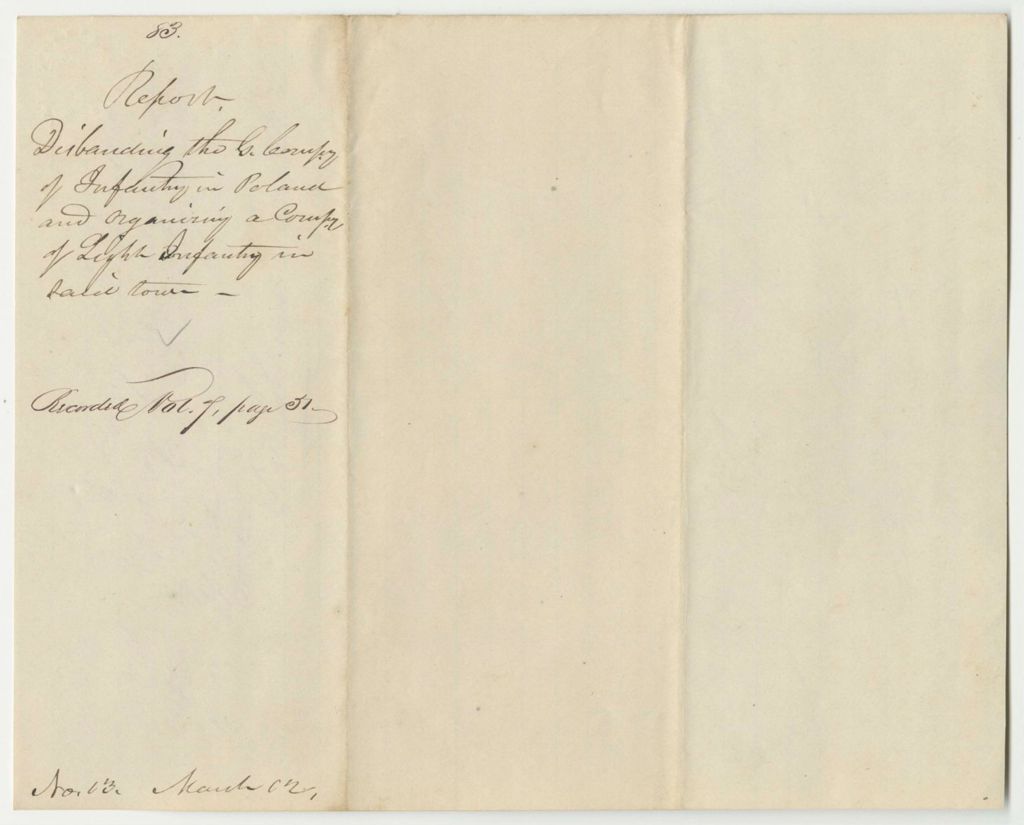 83.
Report.
Disbanding the G. Compy
of Infantry in Poland
and organizing a Compy
of Light Infantry in
said town —
Recorded Vol. 7, page 31
No. 13. March 12,